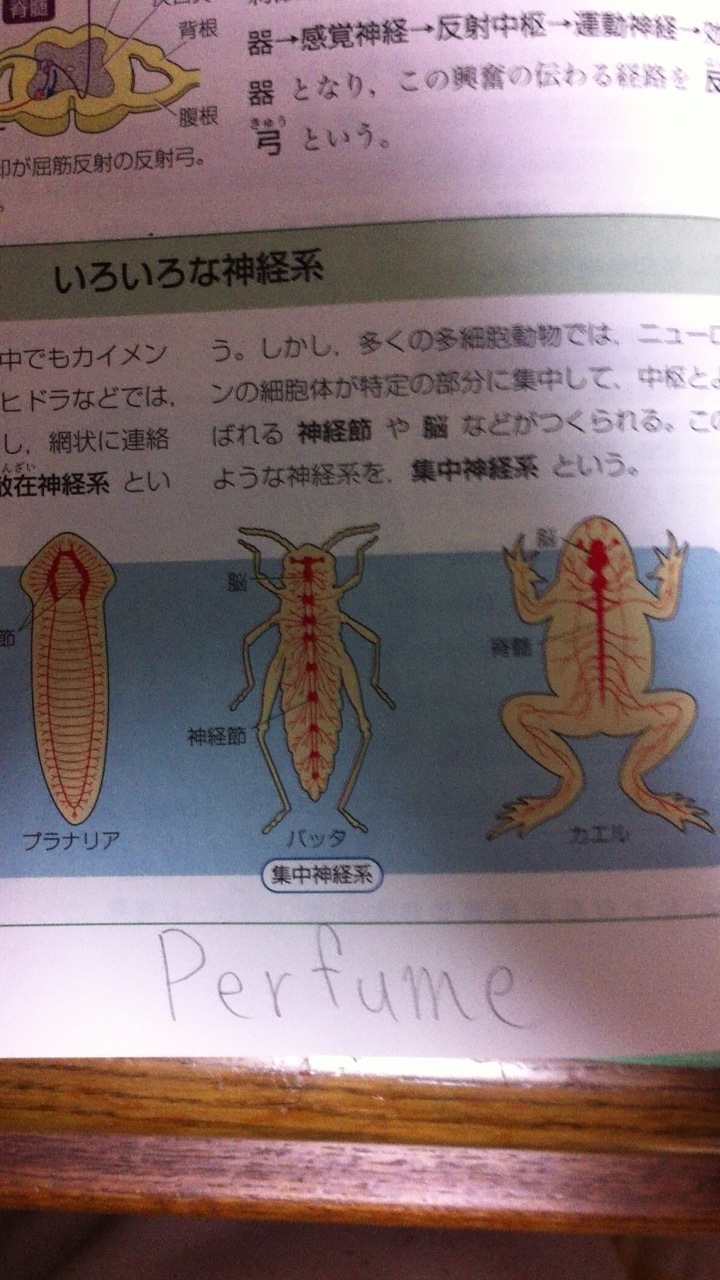 脊髄
背根
腹根
器→感覚神経→反射中枢→運動神経→
器 となり，この興奮の伝わる経路を
きゅう
弓 という。
が屈筋反射の反射弓。
いろいろな神経系
中でもカイメン
ヒドラなどでは，
し，網状に連絡
んざい
散在神経系 とい
う。しかし，多くの多細胞動物では，ニューロ
ンの細胞体が特定の部分に集中して，中枢とよ
ばれる 神経節 や 脳 などがつくられる。この
ような神経系を，集中神経系 という。
節
プラナリア
脳
神経節
バッタ
脳
脊髄
カエル
集中神経系
Perfume